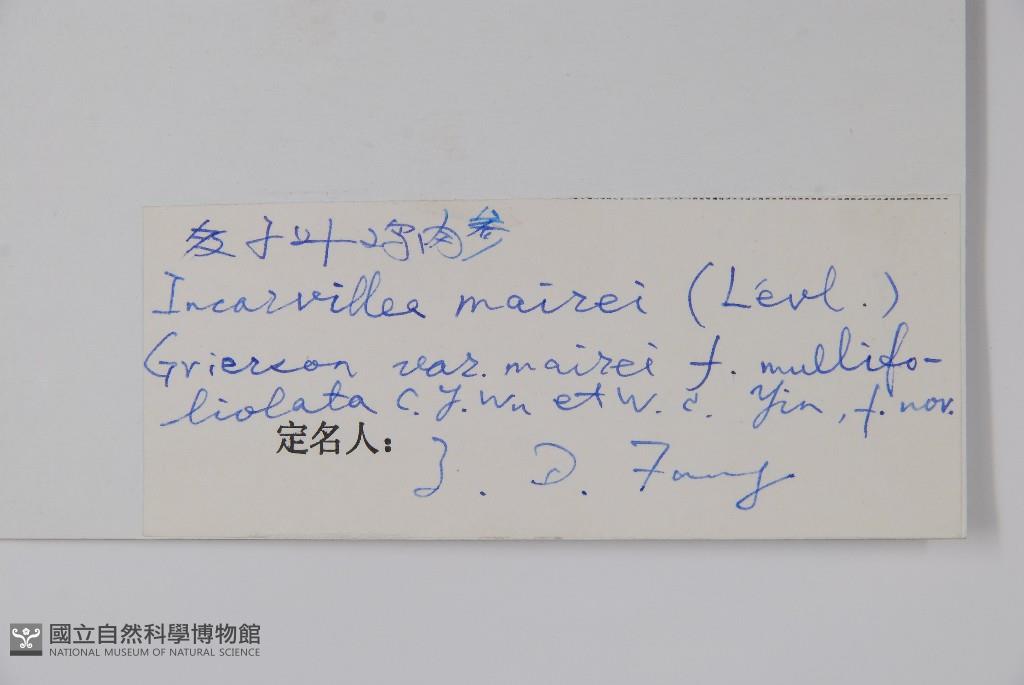 多子叶鸡肉参
Incarvillea mairei (Lévl.)
Grierson var. mairei f. multifo-
liolata C. Y. Wu et W. C. Yin, f. nov.
定名人:
D. Fang
國立自然科學博物館
NATIONAL MUSEUM OF NATURAL SCIENCE